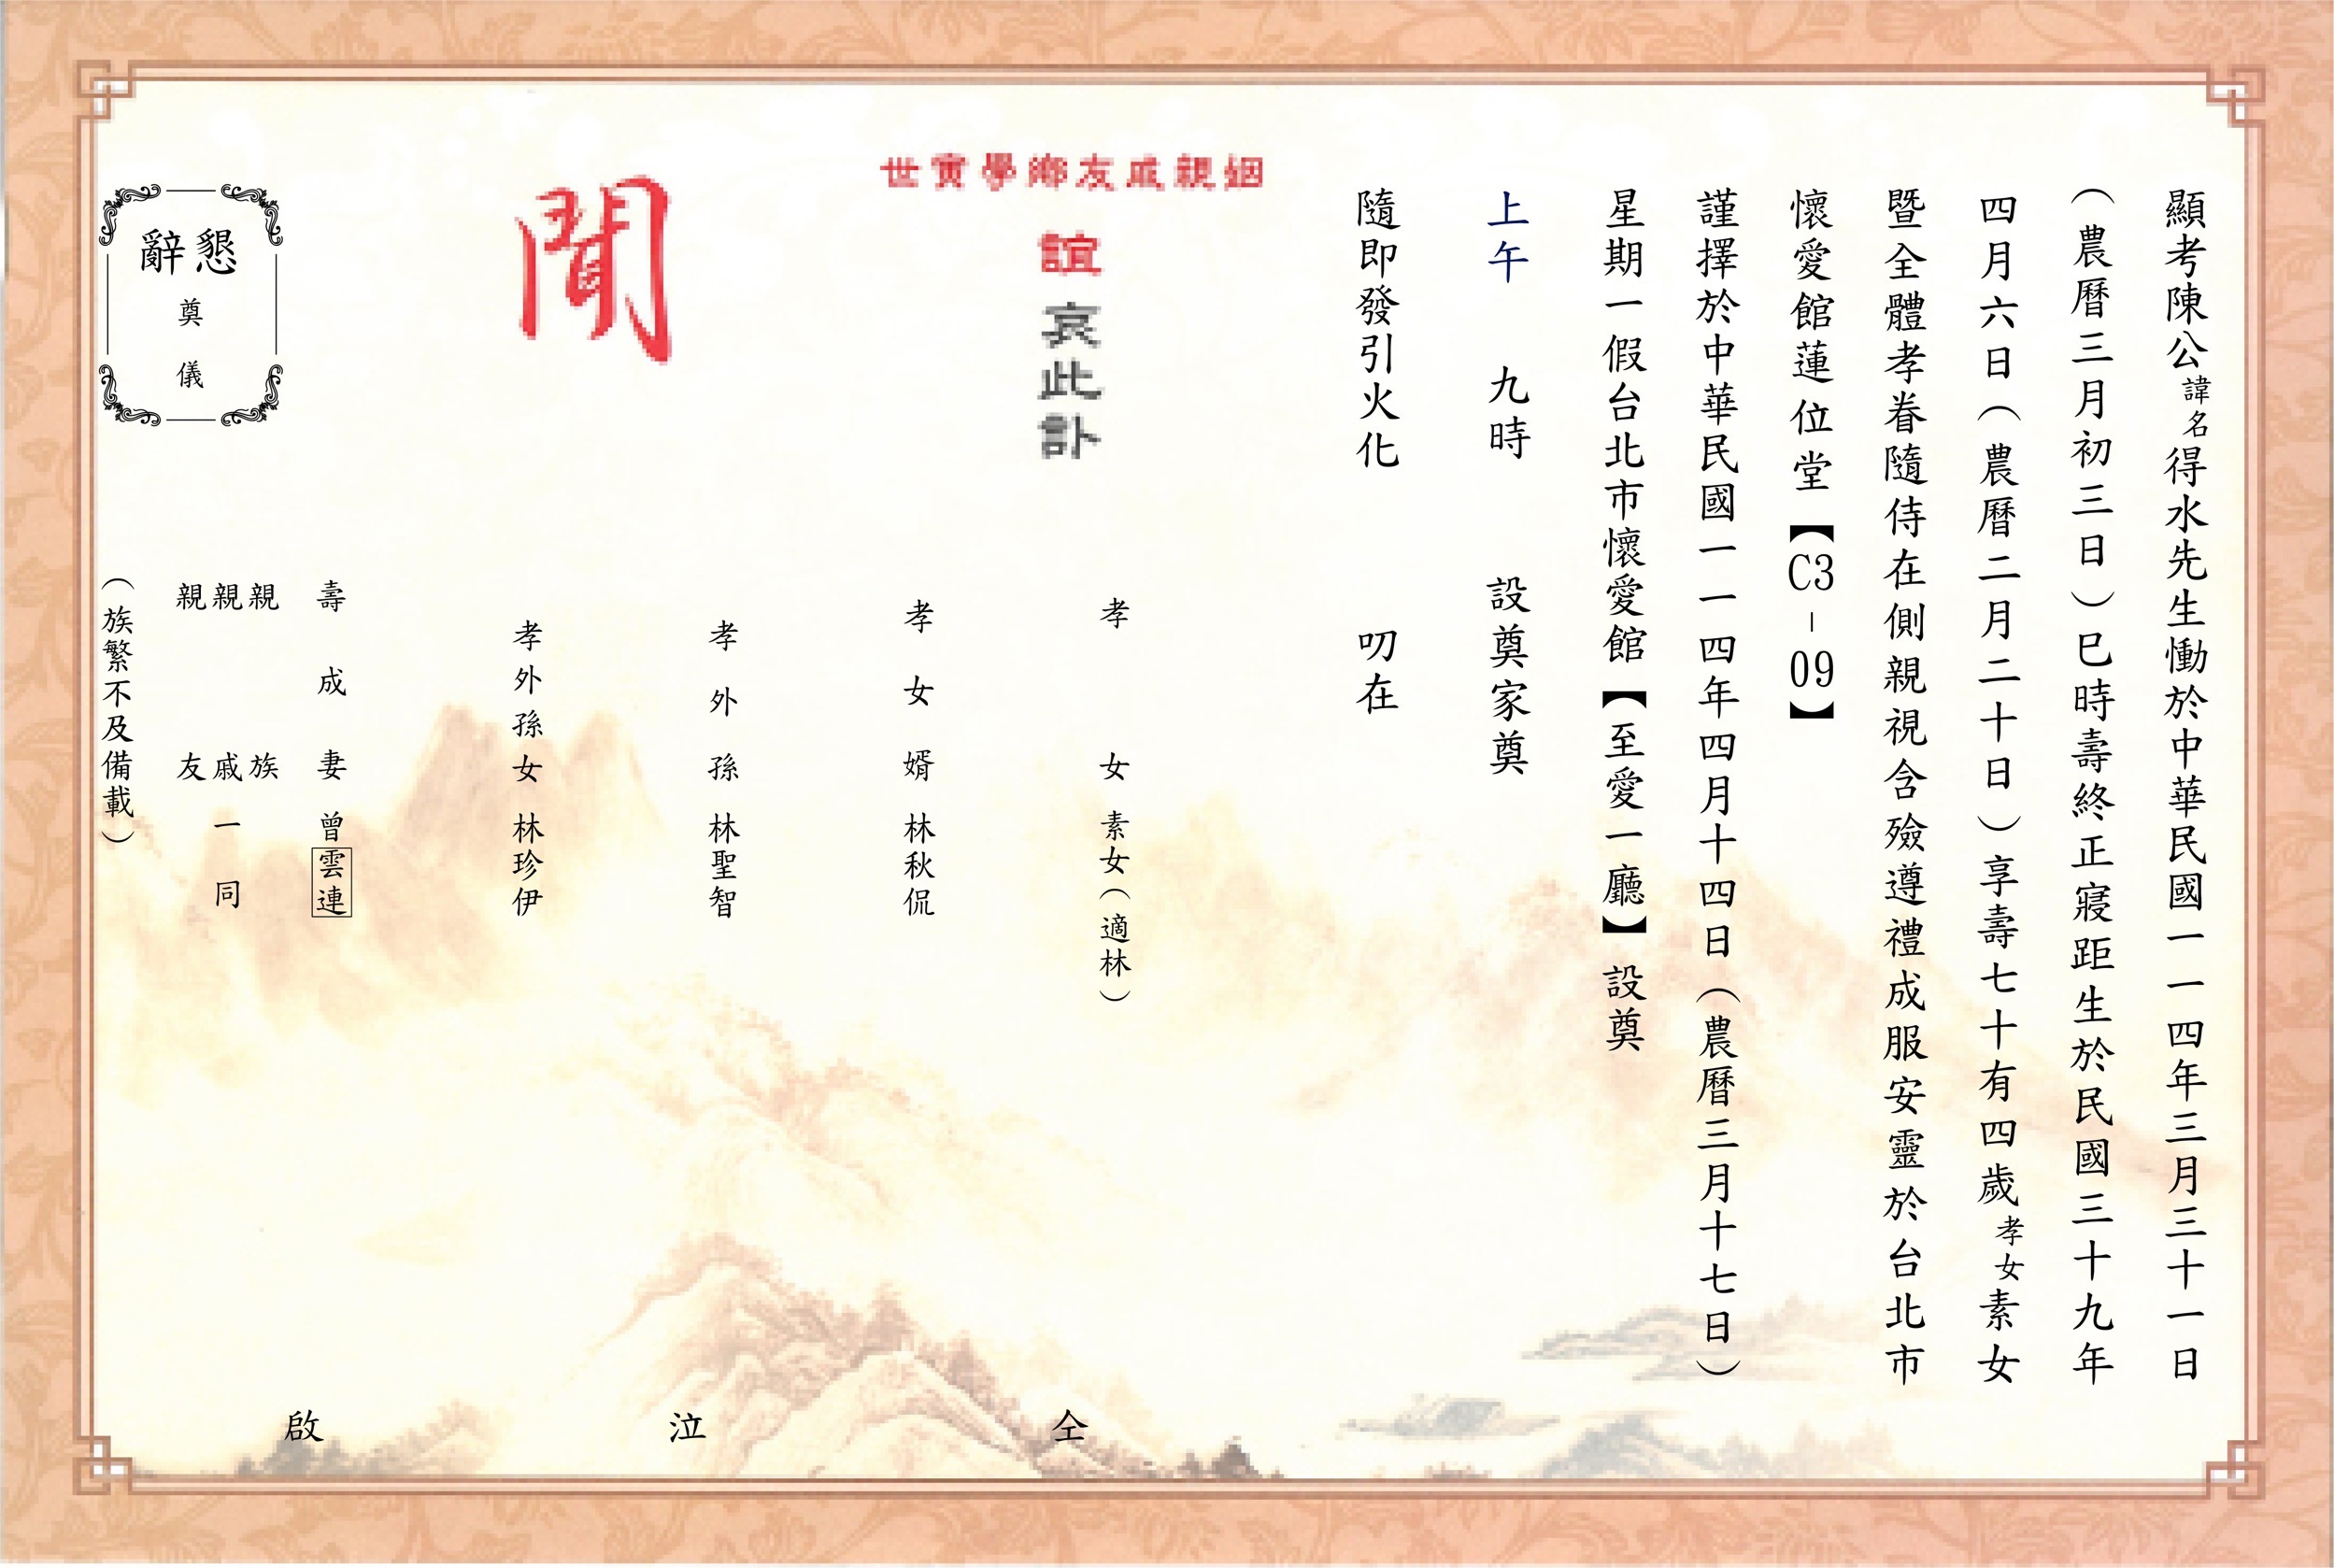 顯考陳公諱名得水先生慟於中華民國一一四年三月三十一日
（農曆三月初三日）巳時壽終正寢距生於民國三十九年
四月六日（農曆二月二十日）享壽七十有四歲孝女素女
暨全體孝眷隨侍在側親視含殮遵禮成服安靈於台北市
懷愛館蓮位堂【C3-09】
謹擇於中華民國一一四年四月十四日（農曆三月十七日）
星期一假台北市懷愛館【至愛一廳】設奠
上午 九時 設奠家奠
隨即發引火化 叨在
姻親戚友鄉學寅世
誼 哀此訃
聞
孝女 素女（適林）
孝女婿 林秋侃
孝外孫 林聖智
孝外孫女 林珍伊
壽成妻 曾雲連
親族
親戚 一同
親友
（族繁不及備載）
仝 泣 啟
懇辭
奠儀